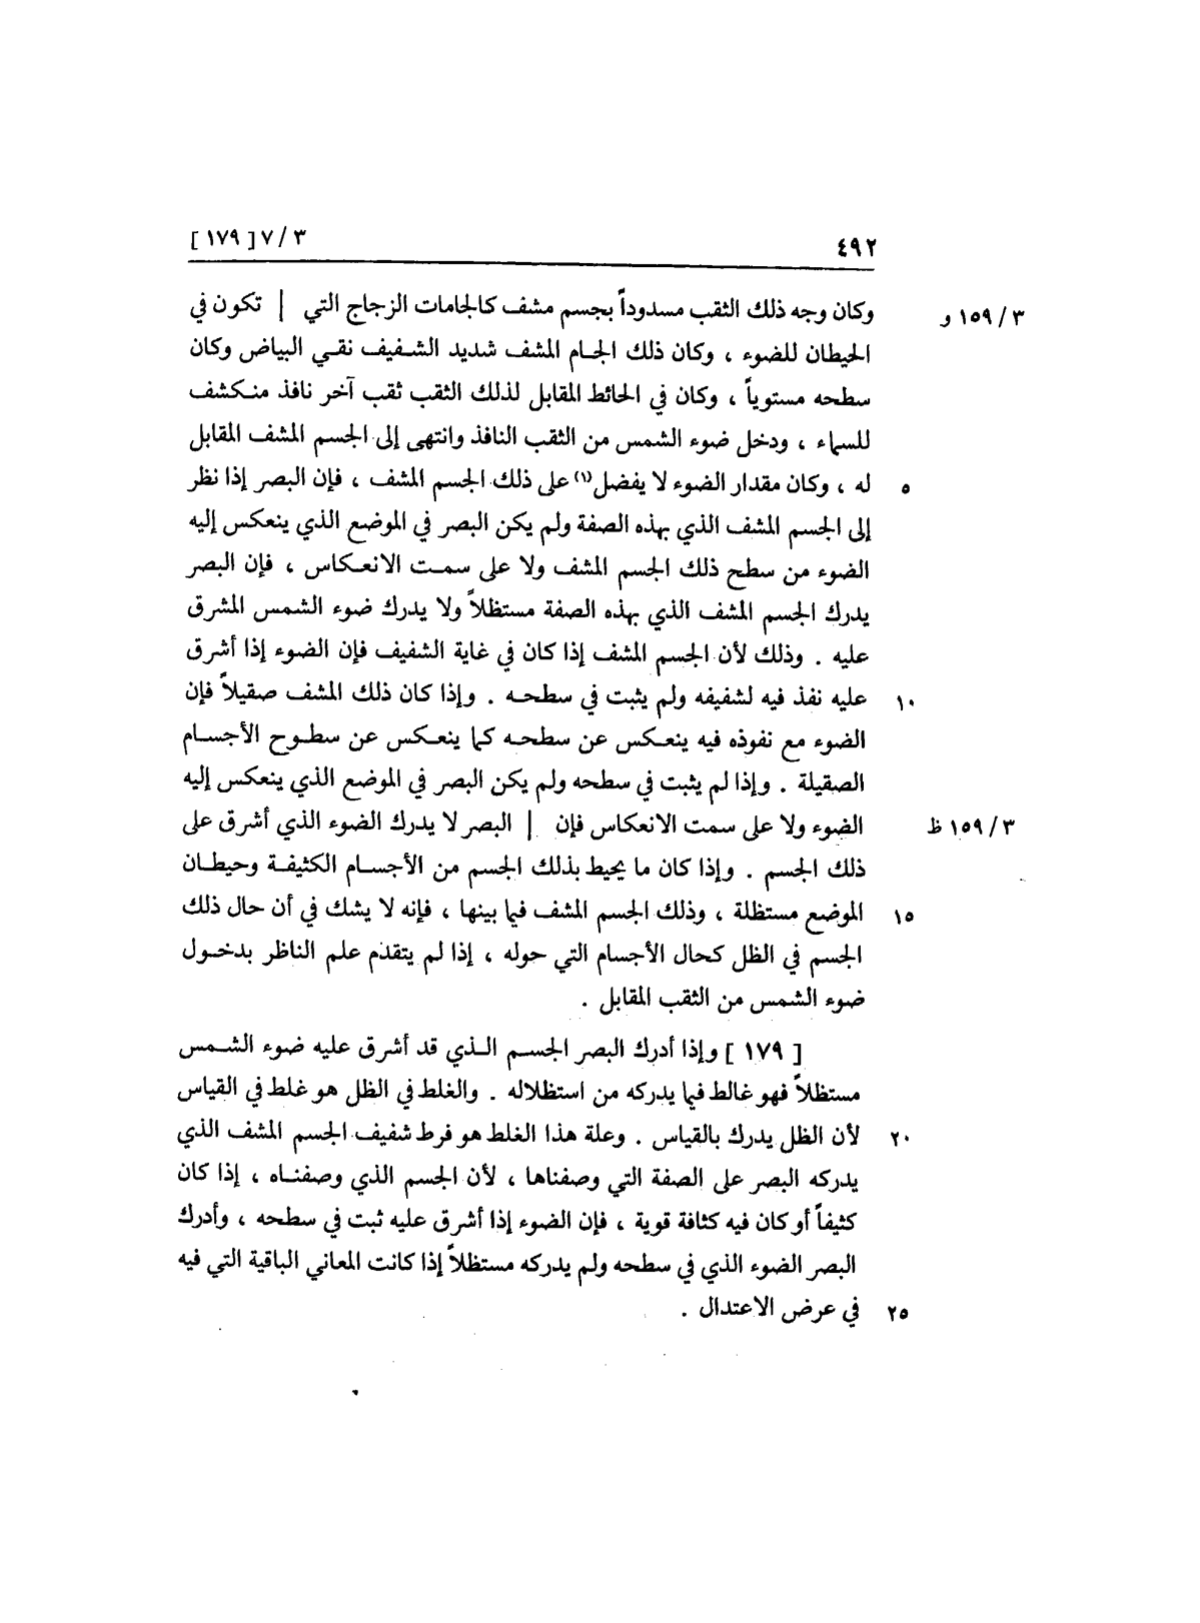 ٤٩٢ ٣ / ٧ [ ١٧٩ ]
وكان وجه ذلك الثقب مسدوداً بجسم مشف كالجامات الزجاج التي | تكون في ٣ / ١٥٩ و
الحيطان للضوء ، وكان ذلك الجام المشف شديد الشفيف نقي البياض وكان
سطحه مستوياً ، وكان في الحائط المقابل لذلك الثقب ثقب آخر نافذ منكشف
للسماء ، ودخل ضوء الشمس من الثقب النافذ وانتهى إلى الجسم المشف المقابل
٥ له ، وكان مقدار الضوء لا يفضل (١) على ذلك الجسم المشف ، فإن البصر إذا نظر
إلى الجسم المشف الذي بهذه الصفة ولم يكن البصر في الموضع الذي ينعكس إليه
الضوء من سطح ذلك الجسم المشف ولا على سمت الانعكاس ، فإن البصر
يدرك الجسم المشف الذي بهذه الصفة مستظلاً ولا يدرك ضوء الشمس المشرق
عليه . وذلك لأن الجسم المشف إذا كان في غاية الشفيف فإن الضوء إذا أشرق
١٠ عليه نفذ فيه لشفيفه ولم يثبت في سطحه . وإذا كان ذلك المشف صقيلاً فإن
الضوء مع نفوذه فيه ينعكس عن سطحه كما ينعكس عن سطوح الأجسام
الصقيلة . وإذا لم يثبت في سطحه ولم يكن البصر في الموضع الذي ينعكس إليه
الضوء ولا على سمت الانعكاس فإن | البصر لا يدرك الضوء الذي أشرق على ٣ / ١٥٩ ظ
ذلك الجسم . وإذا كان ما يحيط بذلك الجسم من الأجسام الكثيفة وحيطان
١٥ الموضع مستظلة ، وذلك الجسم المشف فيما بينها ، فإنه لا يشك في أن حال ذلك
الجسم في الظل كحال الأجسام التي حوله ، إذا لم يتقدم علم الناظر بدخول
ضوء الشمس من الثقب المقابل .
[ ١٧٩ ] وإذا أدرك البصر الجسم الذي قد أشرق عليه ضوء الشمس
مستظلاً فهو غالط فيما يدركه من استظلاله . والغلط في الظل هو غلط في القياس
٢٠ لأن الظل يدرك بالقياس . وعلة هذا الغلط هو فرط شفيف الجسم المشف الذي
يدركه البصر على الصفة التي وصفناها ، لأن الجسم الذي وصفناه ، إذا كان
كثيفاً أو كان فيه كثافة قوية ، فإن الضوء إذا أشرق عليه ثبت في سطحه ، وأدرك
البصر الضوء الذي في سطحه ولم يدركه مستظلاً إذا كانت المعاني الباقية التي فيه
٢٥ في عرض الاعتدال .